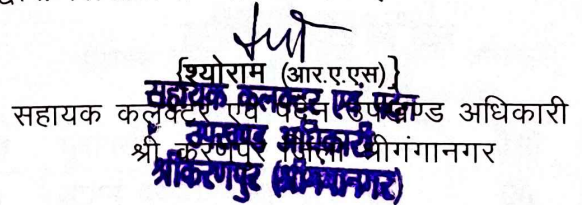 {श्योराम (आर.ए.एस)}
सहायक कलक्टर एवं पदेन उपखण्ड अधिकारी
श्री करणपुर जिला श्रीगंगानगर
सहायक कलक्टर एवं पदेन
उपखण्ड अधिकारी
श्रीकरणपुर (श्रीगंगानगर)